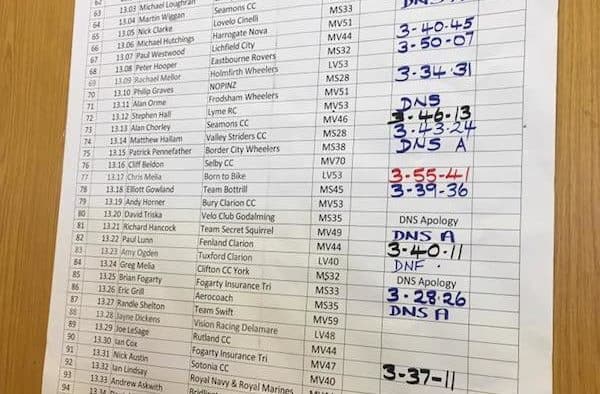 62
63 13.03 Michael Loughran DNS
64 13.04 Martin Wiggan Seamons CC
65 13.05 Nick Clarke Lovelo Cinelli MS33
66 13.06 Michael Hutchings Harrogate Nova MV51 3-40-45
67 13.07 Paul Westwood Lichfield City MV44 3-50-07
68 13.08 Peter Hooper Eastbourne Rovers MS32
69 13.09 Rachael Mellor Holmfirth Wheelers LV53 3-34-31
70 13.10 Philip Graves NOPINZ MS28
71 13.11 Alan Orme Frodsham Wheelers MV51
72 13.12 Stephen Hall Lyme RC MV53 DNS
73 13.13 Alan Chorley Seamons CC MV46 3-46-13
74 13.14 Matthew Hallam Valley Striders CC MS28 3-43-24
75 13.15 Patrick Pennefather Border City Wheelers MS38 DNS A
76 13.16 Cliff Beldon Selby CC MV70
77 13.17 Chris Melia Born to Bike LV53 3-55-41
78 13.18 Elliott Gowland Team Bottrill MS45 3-39-36
79 13.19 Andy Horner Bury Clarion CC MV53
80 13.20 David Triska Velo Club Godalming MS35 DNS Apology
81 13.21 Richard Hancock Team Secret Squirrel MV49 DNS A
82 13.22 Paul Lunn Fenland Clarion MV44 3-40-11
83 13.23 Amy Ogden Tuxford Clarion LV40 DNF
84 13.24 Greg Melia Clifton CC York MS32 DNS Apology
85 13.25 Brian Fogarty Fogarty Insurance Tri MS33 3-28-26
86 13.26 Eric Grill Aerocoach MS35 DNS A
87 13.27 Randle Shelton Team Swift MV59
88 13.28 Jayne Dickens Vision Racing Delamare LV48
89 13.29 Joe LeSage Rutland CC MV47
90 13.30 Ian Cox Fogarty Insurance Tri MV47
91 13.31 Nick Austin Sotonia CC MV40 3-37-11
92 13.32 Ian Lindsay Royal Navy & Royal Marines
93 13.33 Andrew Askwith
94